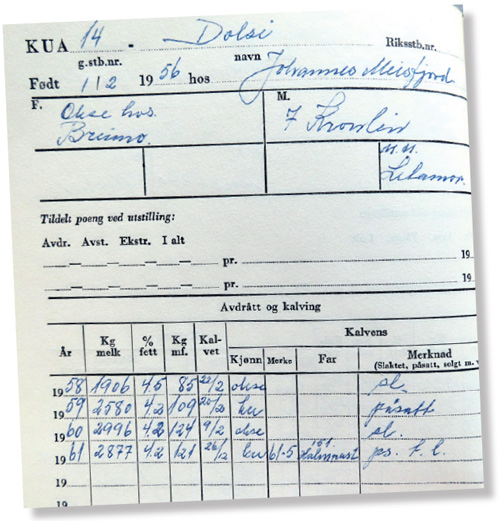 KUA 14 - Dolsi Riksstb.nr.
g.stb.nr. navn
Født 1/2 1956 hos Johannes Meisfjord
F. M.
Okse hos 7 Kronlin
Breimo.
M.M.
Lilamor.
Tildelt poeng ved utstilling:
Avdr. Avst. Ekstr. I alt
pr. 19
pr. 19
Avdrått og kalving
År Kg melk % fett Kg mf. Kal-vet Kalvens
Kjønn Merke Far Merknad
(Slaktet, påsatt, solgt m. v
1958 1906 4.5 85 22/2 okse sl.
1959 2580 4.2 109 20/2 ku påsatt
1960 2996 4.2 124 9/2 okse sl.
1961 2877 4.2 121 26/2 ku 61-5 151 ps. t. l.
19
19